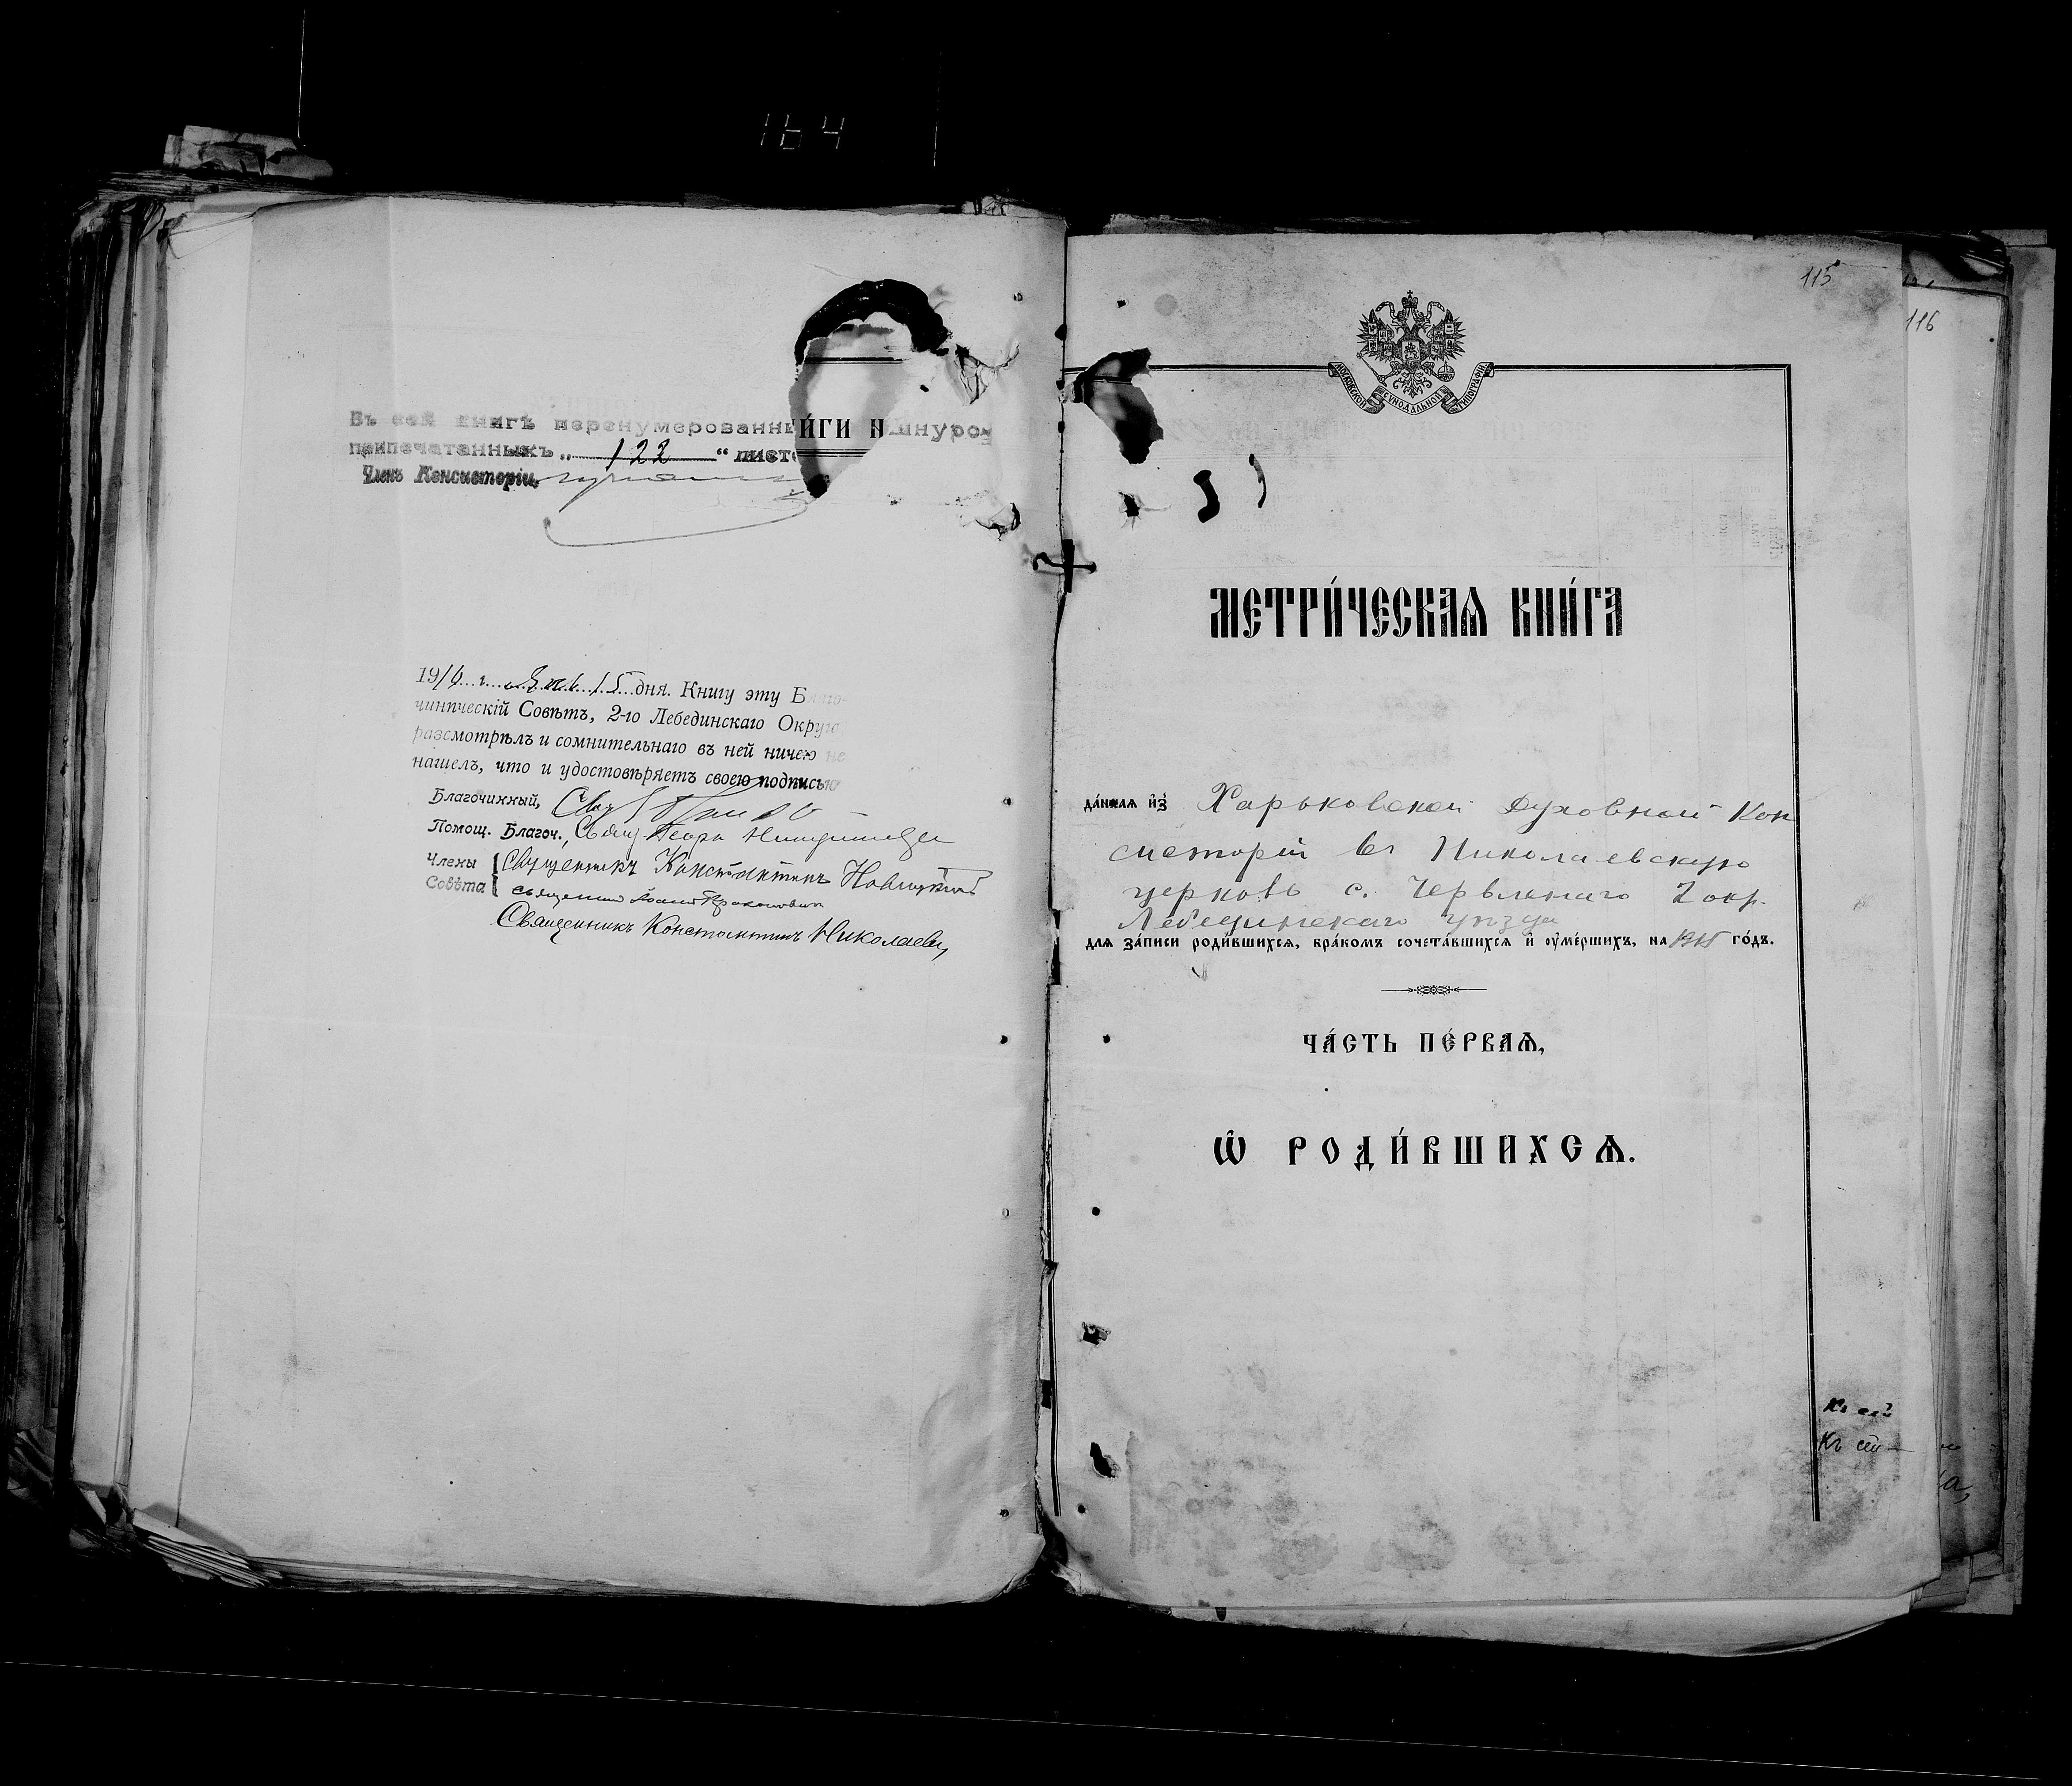 164
Въ сей книгѣ перенумерованны ИГИ И шнуро-
припечатанныхъ „ 122 “ листо
Членъ Консисторіи,
1916 г. Янв. 15 дня. Книгу эту Благо-
чинническій Совѣтъ, 2-го Лебединскаго Округа
разсмотрѣлъ и сомнительнаго въ ней ничего не
нашелъ, что и удостовѣряетъ своею подписью
Благочинный, Свящ
Помощ. Благоч., Свящ. Георг
Члены Священникъ Константинъ
Совѣта священникъ Іоаннъ
Священникъ Константинъ Николаевъ
115
116
МОСКОВСКОЙ СѴНОДАЛЬНОЙ ТИПОГРАФІИ
МЕТРИ́ЧЕСКАѦ КНИ́ГА
да́ннаѧ и҆з̾ Харьковской Духовной Кон
систоріи въ Николаевскую
церковь с. Червленаго 2 окр.
Лебединскаго уѣзда
длѧ за́писи роди́вшихсѧ, бра́комъ сочета́вшихсѧ и҆ ᲂу҆ме́ршихъ, на 1915 го́дъ.
ЧА́СТЬ ПЕ́РВАѦ,
Ѡ҆ РОДИ́ВШИХСѦ.
Къ сей
Къ сей